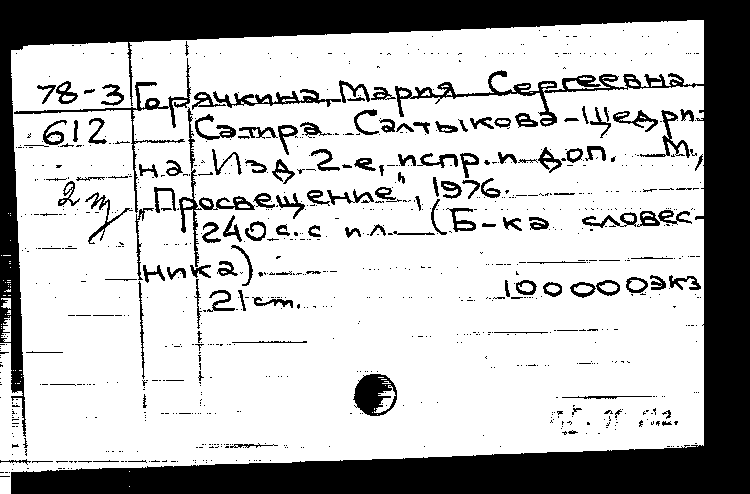 78-3 Горячкина, Мария Сергеевна.
612 Сатира Салтыкова-Щедри-
на. Изд. 2-е, испр. и доп. М.,
2 „Просвещение", 1976.
240 с. с ил. (Б-ка словес-
ника).
21 см. 100000 экз